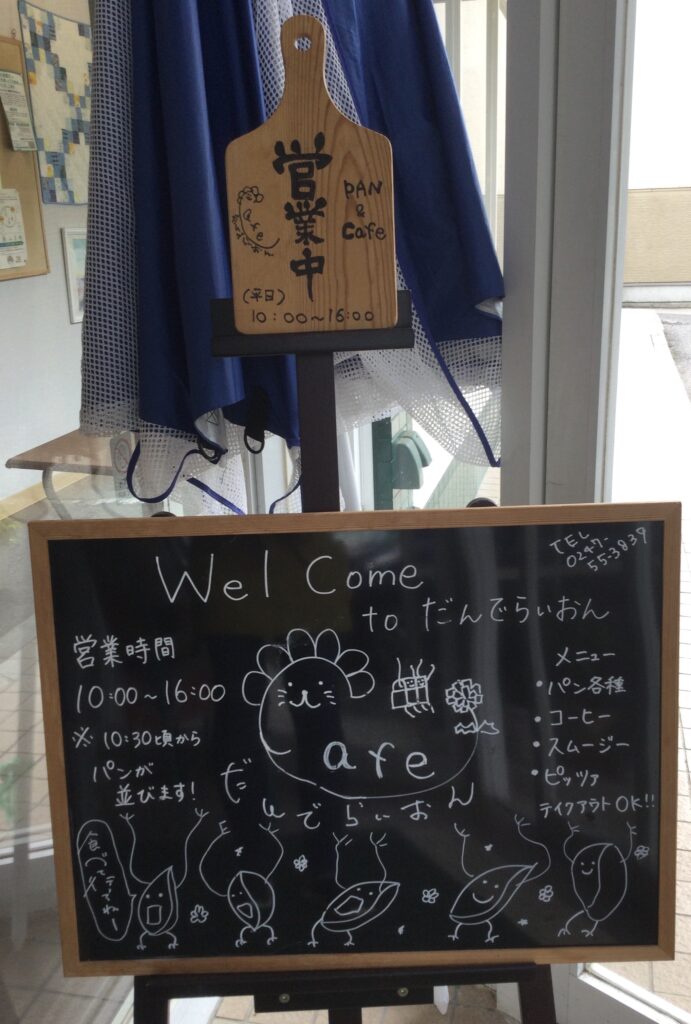 営業中
PAN
&
Cafe
(平日)
10:00～16:00
TEL
0247-
55-3839
Wel Come
to だんでらぃおん
営業時間
10:00～16:00
※ 10:30頃から
パンが
並びます!
Cafe
だんでらぃおん
メニュー
・パン各種
・コーヒー
・スムージー
・ピッツァ
テイクアウトOK!!
食べて